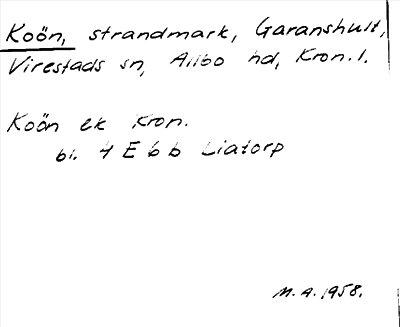 Koön, strandmark, Garanshult,
Virestads sn, Allbo hd, Kron. l.
Koön ek Kron.
bl. 4 E 6 b Liatorp
M. A. 1958.